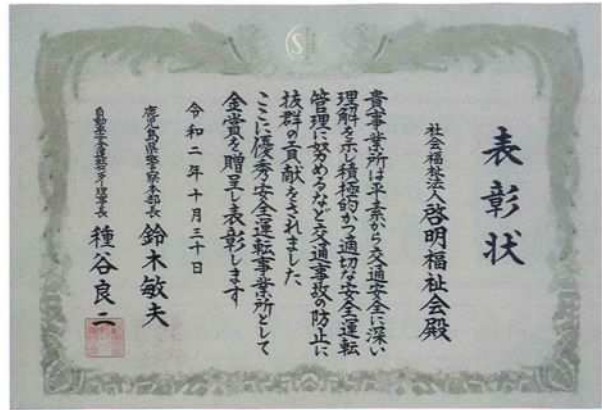 表彰状
社会福祉法人 啓明福祉会殿
貴事業所は平素から交通安全に深い
理解を示し積極的かつ適切な安全運転
管理に努めるなど交通事故の防止に
抜群の貢献をされました
ここに優秀安全運転事業所として
金賞を贈呈し表彰します
令和二年十月三十日
鹿児島県警察本部長 鈴木敏夫
自動車安全運転センター理事長 種谷良二